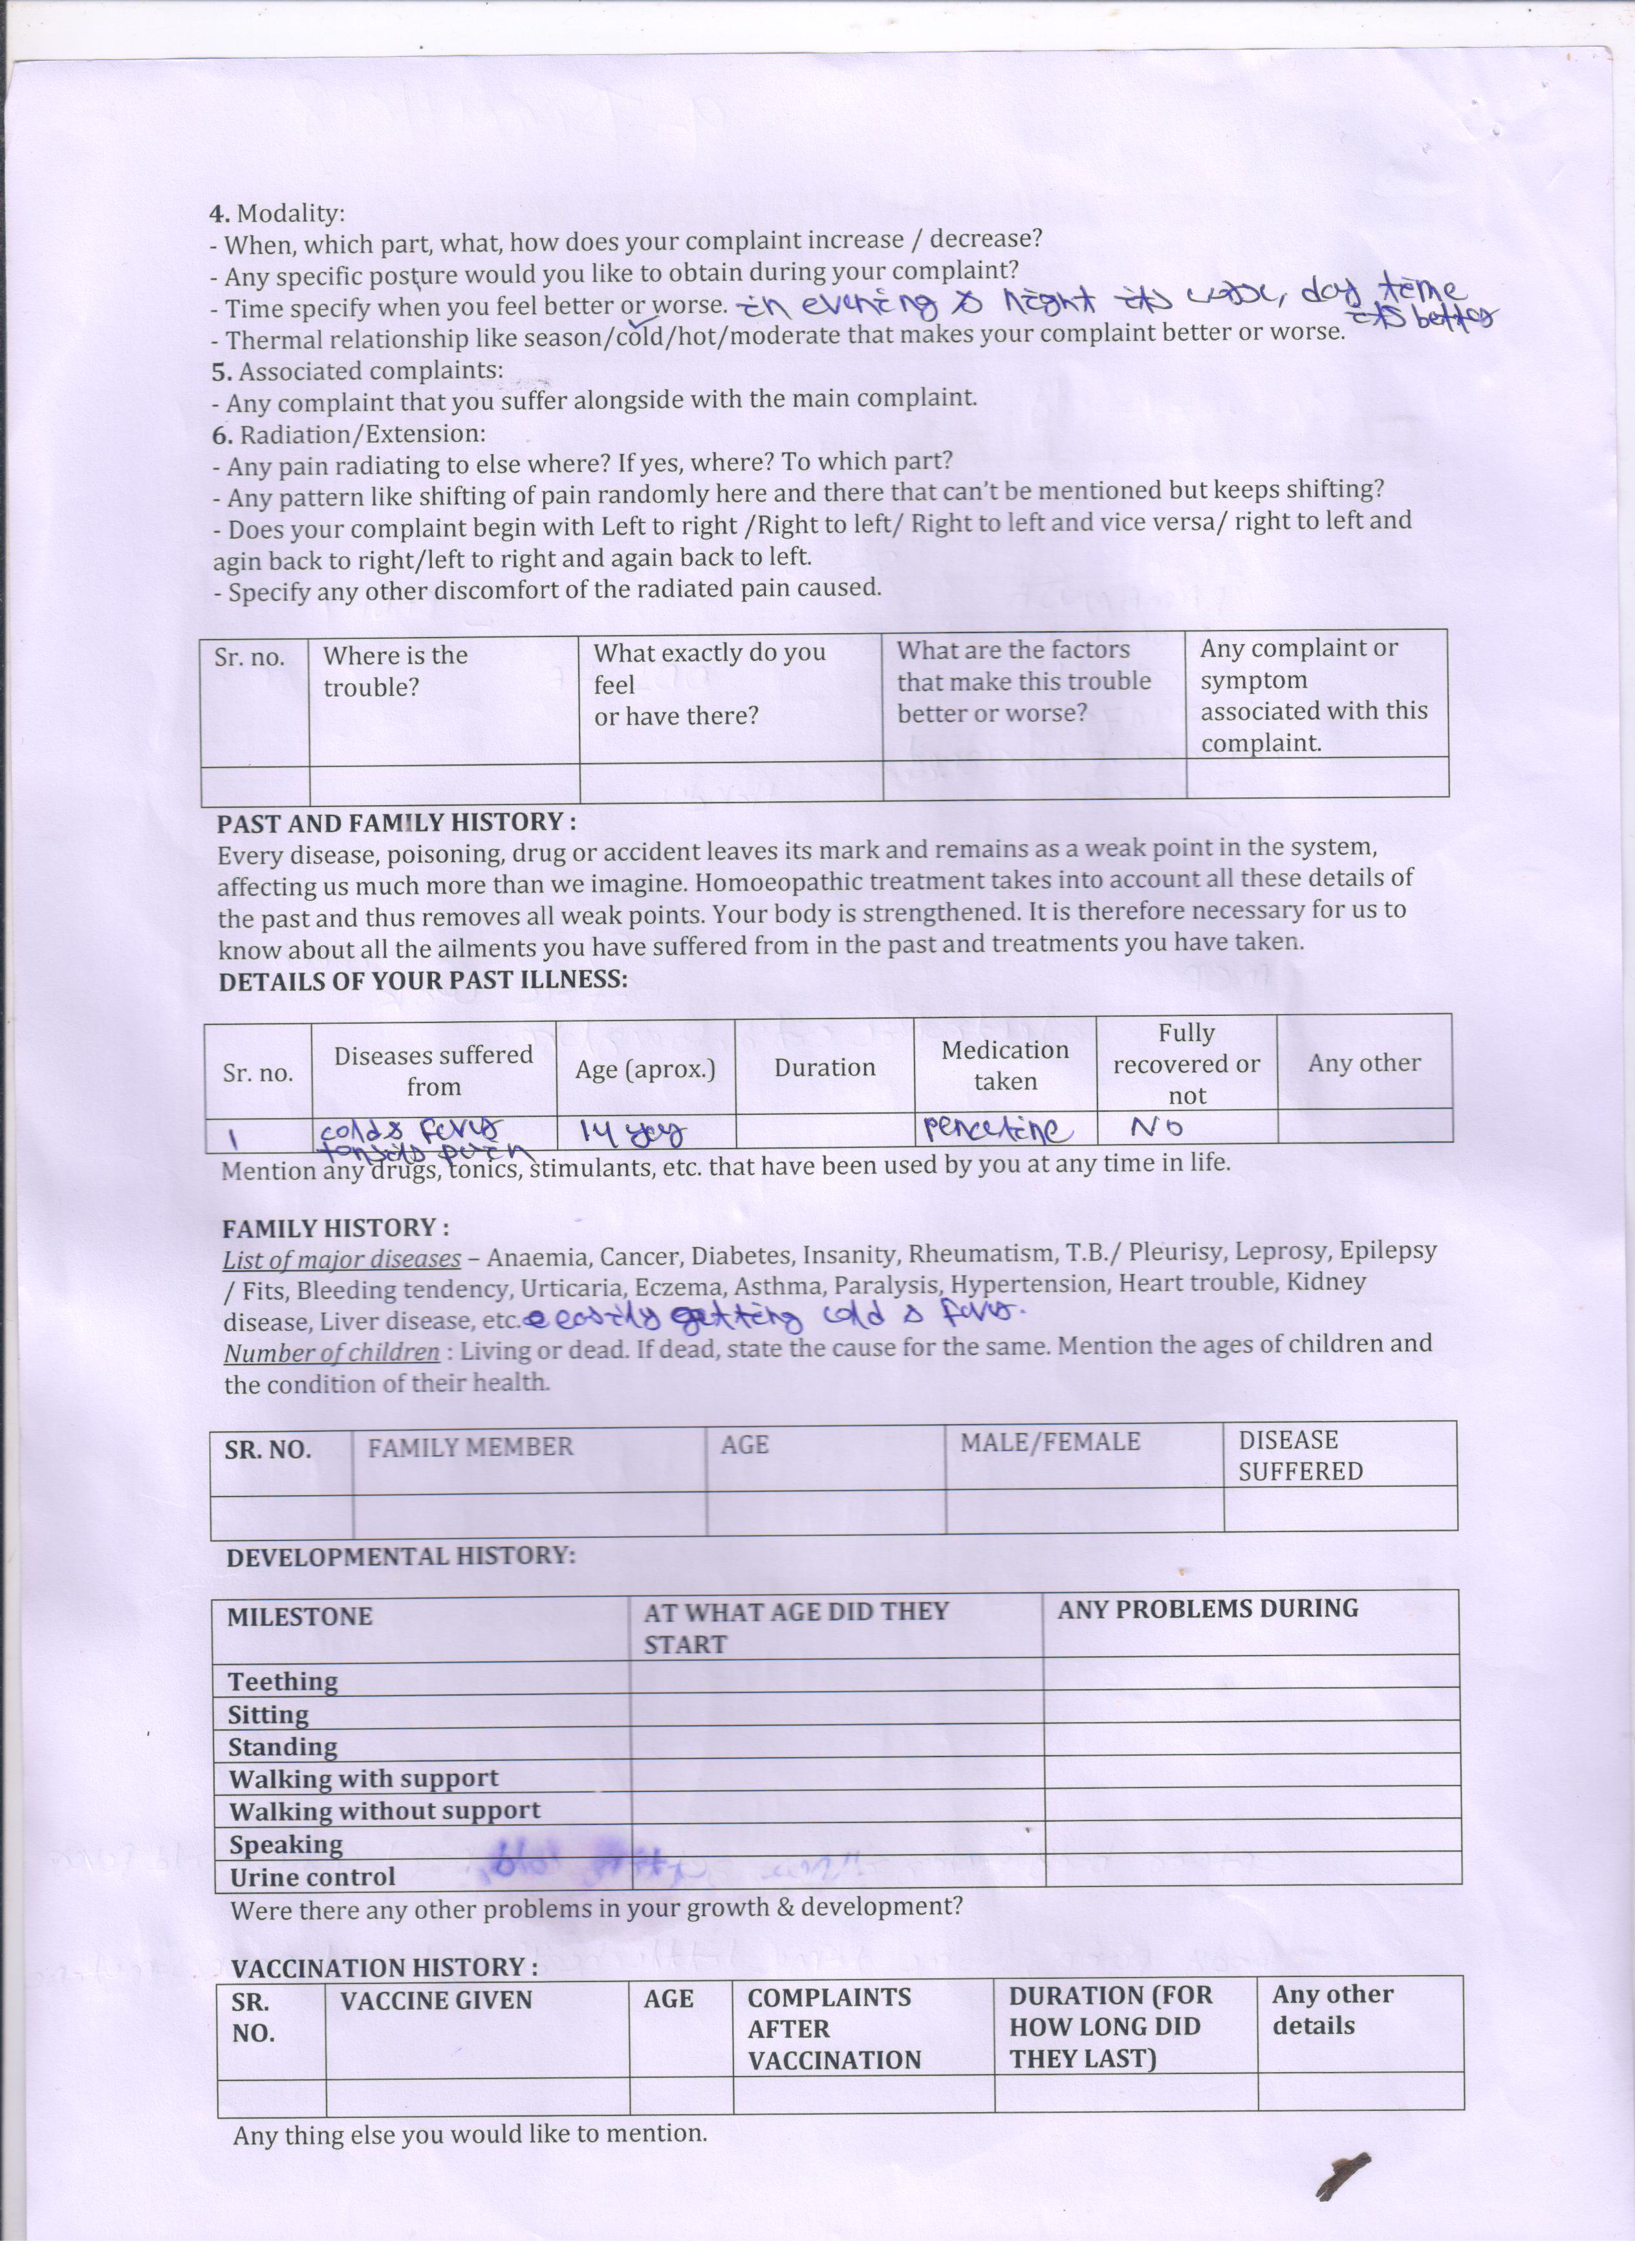 4. Modality:
- When, which part, what, how does your complaint increase / decrease?
- Any specific posture would you like to obtain during your complaint?
- Time specify when you feel better or worse. in evening & night its worse, day time
its better
- Thermal relationship like season/cold/hot/moderate that makes your complaint better or worse.
5. Associated complaints:
- Any complaint that you suffer alongside with the main complaint.
6. Radiation/Extension:
- Any pain radiating to else where? If yes, where? To which part?
- Any pattern like shifting of pain randomly here and there that can't be mentioned but keeps shifting?
- Does your complaint begin with Left to right /Right to left/ Right to left and vice versa/ right to left and
agin back to right/left to right and again back to left.
- Specify any other discomfort of the radiated pain caused.
Sr. no. Where is the What exactly do you What are the factors Any complaint or
trouble? feel that make this trouble symptom
or have there? better or worse? associated with this
complaint.
PAST AND FAMILY HISTORY :
Every disease, poisoning, drug or accident leaves its mark and remains as a weak point in the system,
affecting us much more than we imagine. Homoeopathic treatment takes into account all these details of
the past and thus removes all weak points. Your body is strengthened. It is therefore necessary for us to
know about all the ailments you have suffered from in the past and treatments you have taken.
DETAILS OF YOUR PAST ILLNESS:
Sr. no. Diseases suffered from Age (aprox.) Duration Medication taken Fully recovered or not Any other
1 cold & fever 14 NO
tonsils pain
Mention any drugs, tonics, stimulants, etc. that have been used by you at any time in life.
FAMILY HISTORY :
List of major diseases – Anaemia, Cancer, Diabetes, Insanity, Rheumatism, T.B./ Pleurisy, Leprosy, Epilepsy
/ Fits, Bleeding tendency, Urticaria, Eczema, Asthma, Paralysis, Hypertension, Heart trouble, Kidney
disease, Liver disease, etc. easily getting cold & fever.
Number of children : Living or dead. If dead, state the cause for the same. Mention the ages of children and
the condition of their health.
SR. NO. FAMILY MEMBER AGE MALE/FEMALE DISEASE
SUFFERED
DEVELOPMENTAL HISTORY:
MILESTONE AT WHAT AGE DID THEY ANY PROBLEMS DURING
START
Teething
Sitting
Standing
Walking with support
Walking without support
Speaking
Urine control
Were there any other problems in your growth & development?
VACCINATION HISTORY :
SR. VACCINE GIVEN AGE COMPLAINTS DURATION (FOR Any other
NO. AFTER HOW LONG DID details
VACCINATION THEY LAST)
Any thing else you would like to mention.